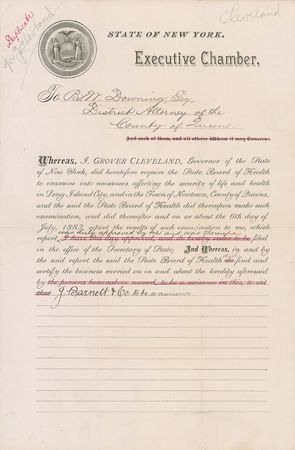 Duplicate
Cleveland
Cleveland
STATE OF NEW YORK.
Executive Chamber.
To B.W. Downing Esq
District Attorney of the
County of Queens.
And each of them, and all others Whom it may Concern:
Whereas, I, GROVER CLEVELAND, Governor of the State
of New York, did heretofore require the State Board of Health
to examine into nuisances affecting the security of life and health
in Long Island City, and in the Town of Newtown, County of Queens,
and the said the State Board of Health did thereupon make such
examination, and did thereafter and on or about the 6th day of
July, 1883, report the results of such examination to me, which
was duly approved by me and was thereupon
report I have this day approved, and do hereby order to be filed
in the office of the Secretary of State; And Whereas, in and
by the said report the said State Board of Health do find and
certify the business carried on in and about the locality aforesaid
by the persons hereinabove named, to be a nuisance on this, to wit
that J. Barnett & Co. to be a nuisance